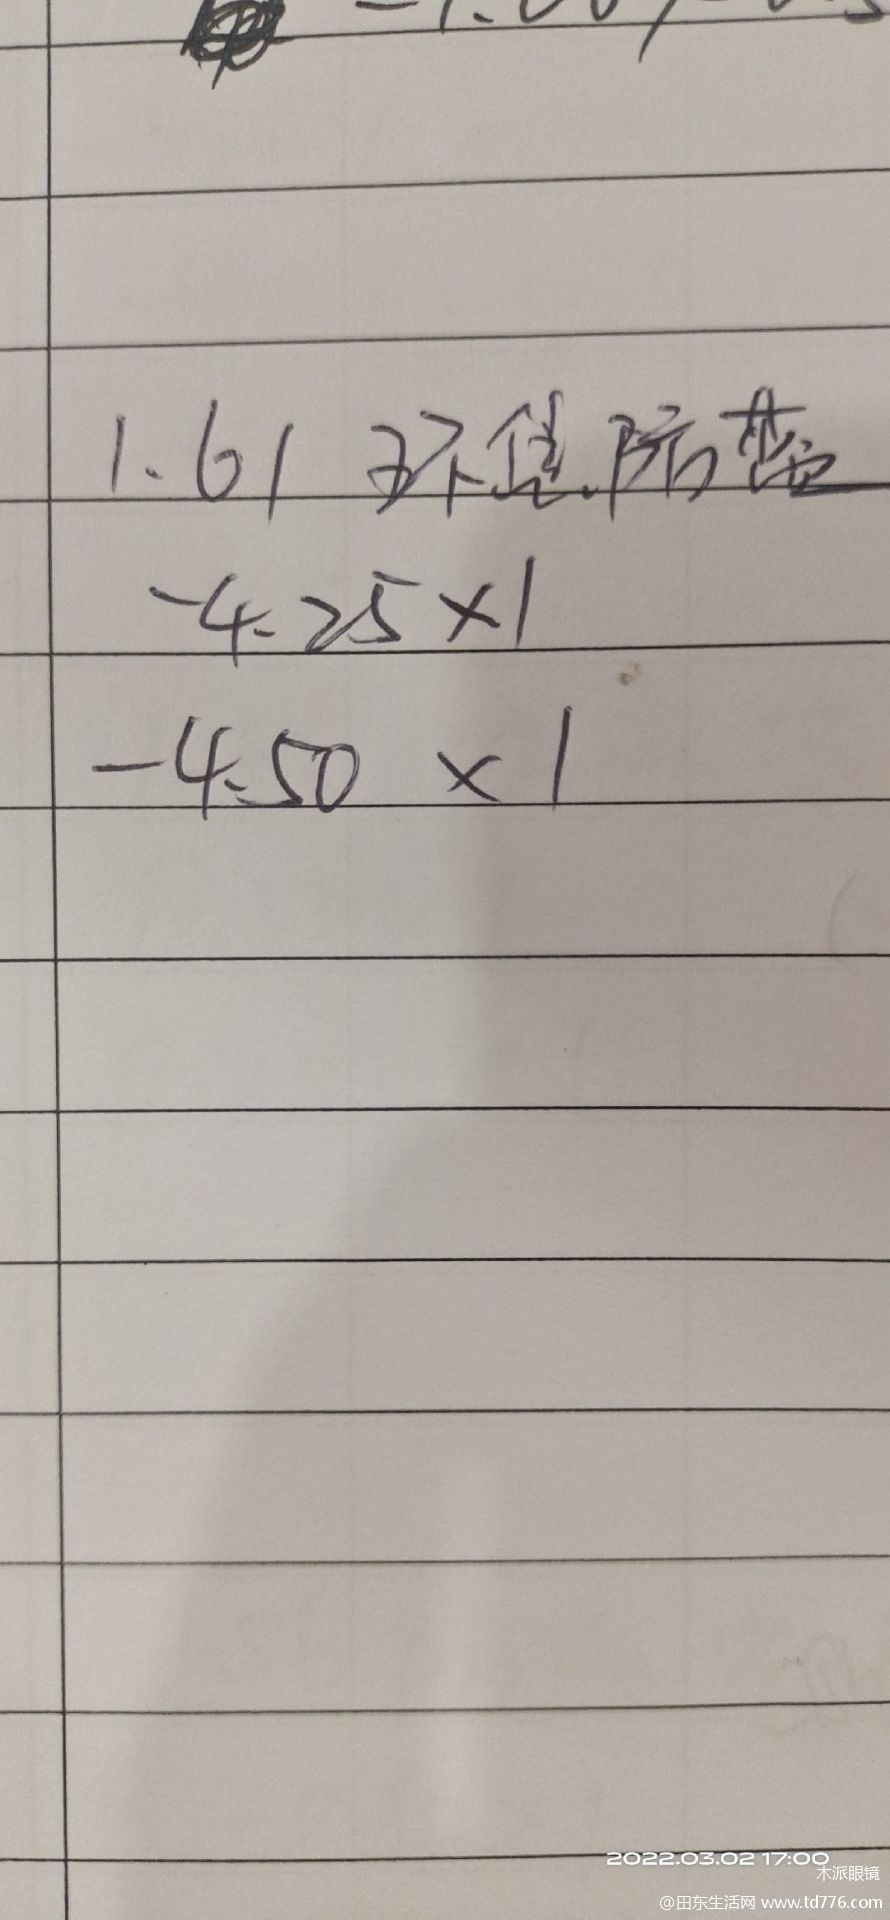 1.61 环焦.防蓝
-4.25×1
-4.50 ×1
2022.03.02 17:00
木派眼镜
@田东生活网 www.td776.com